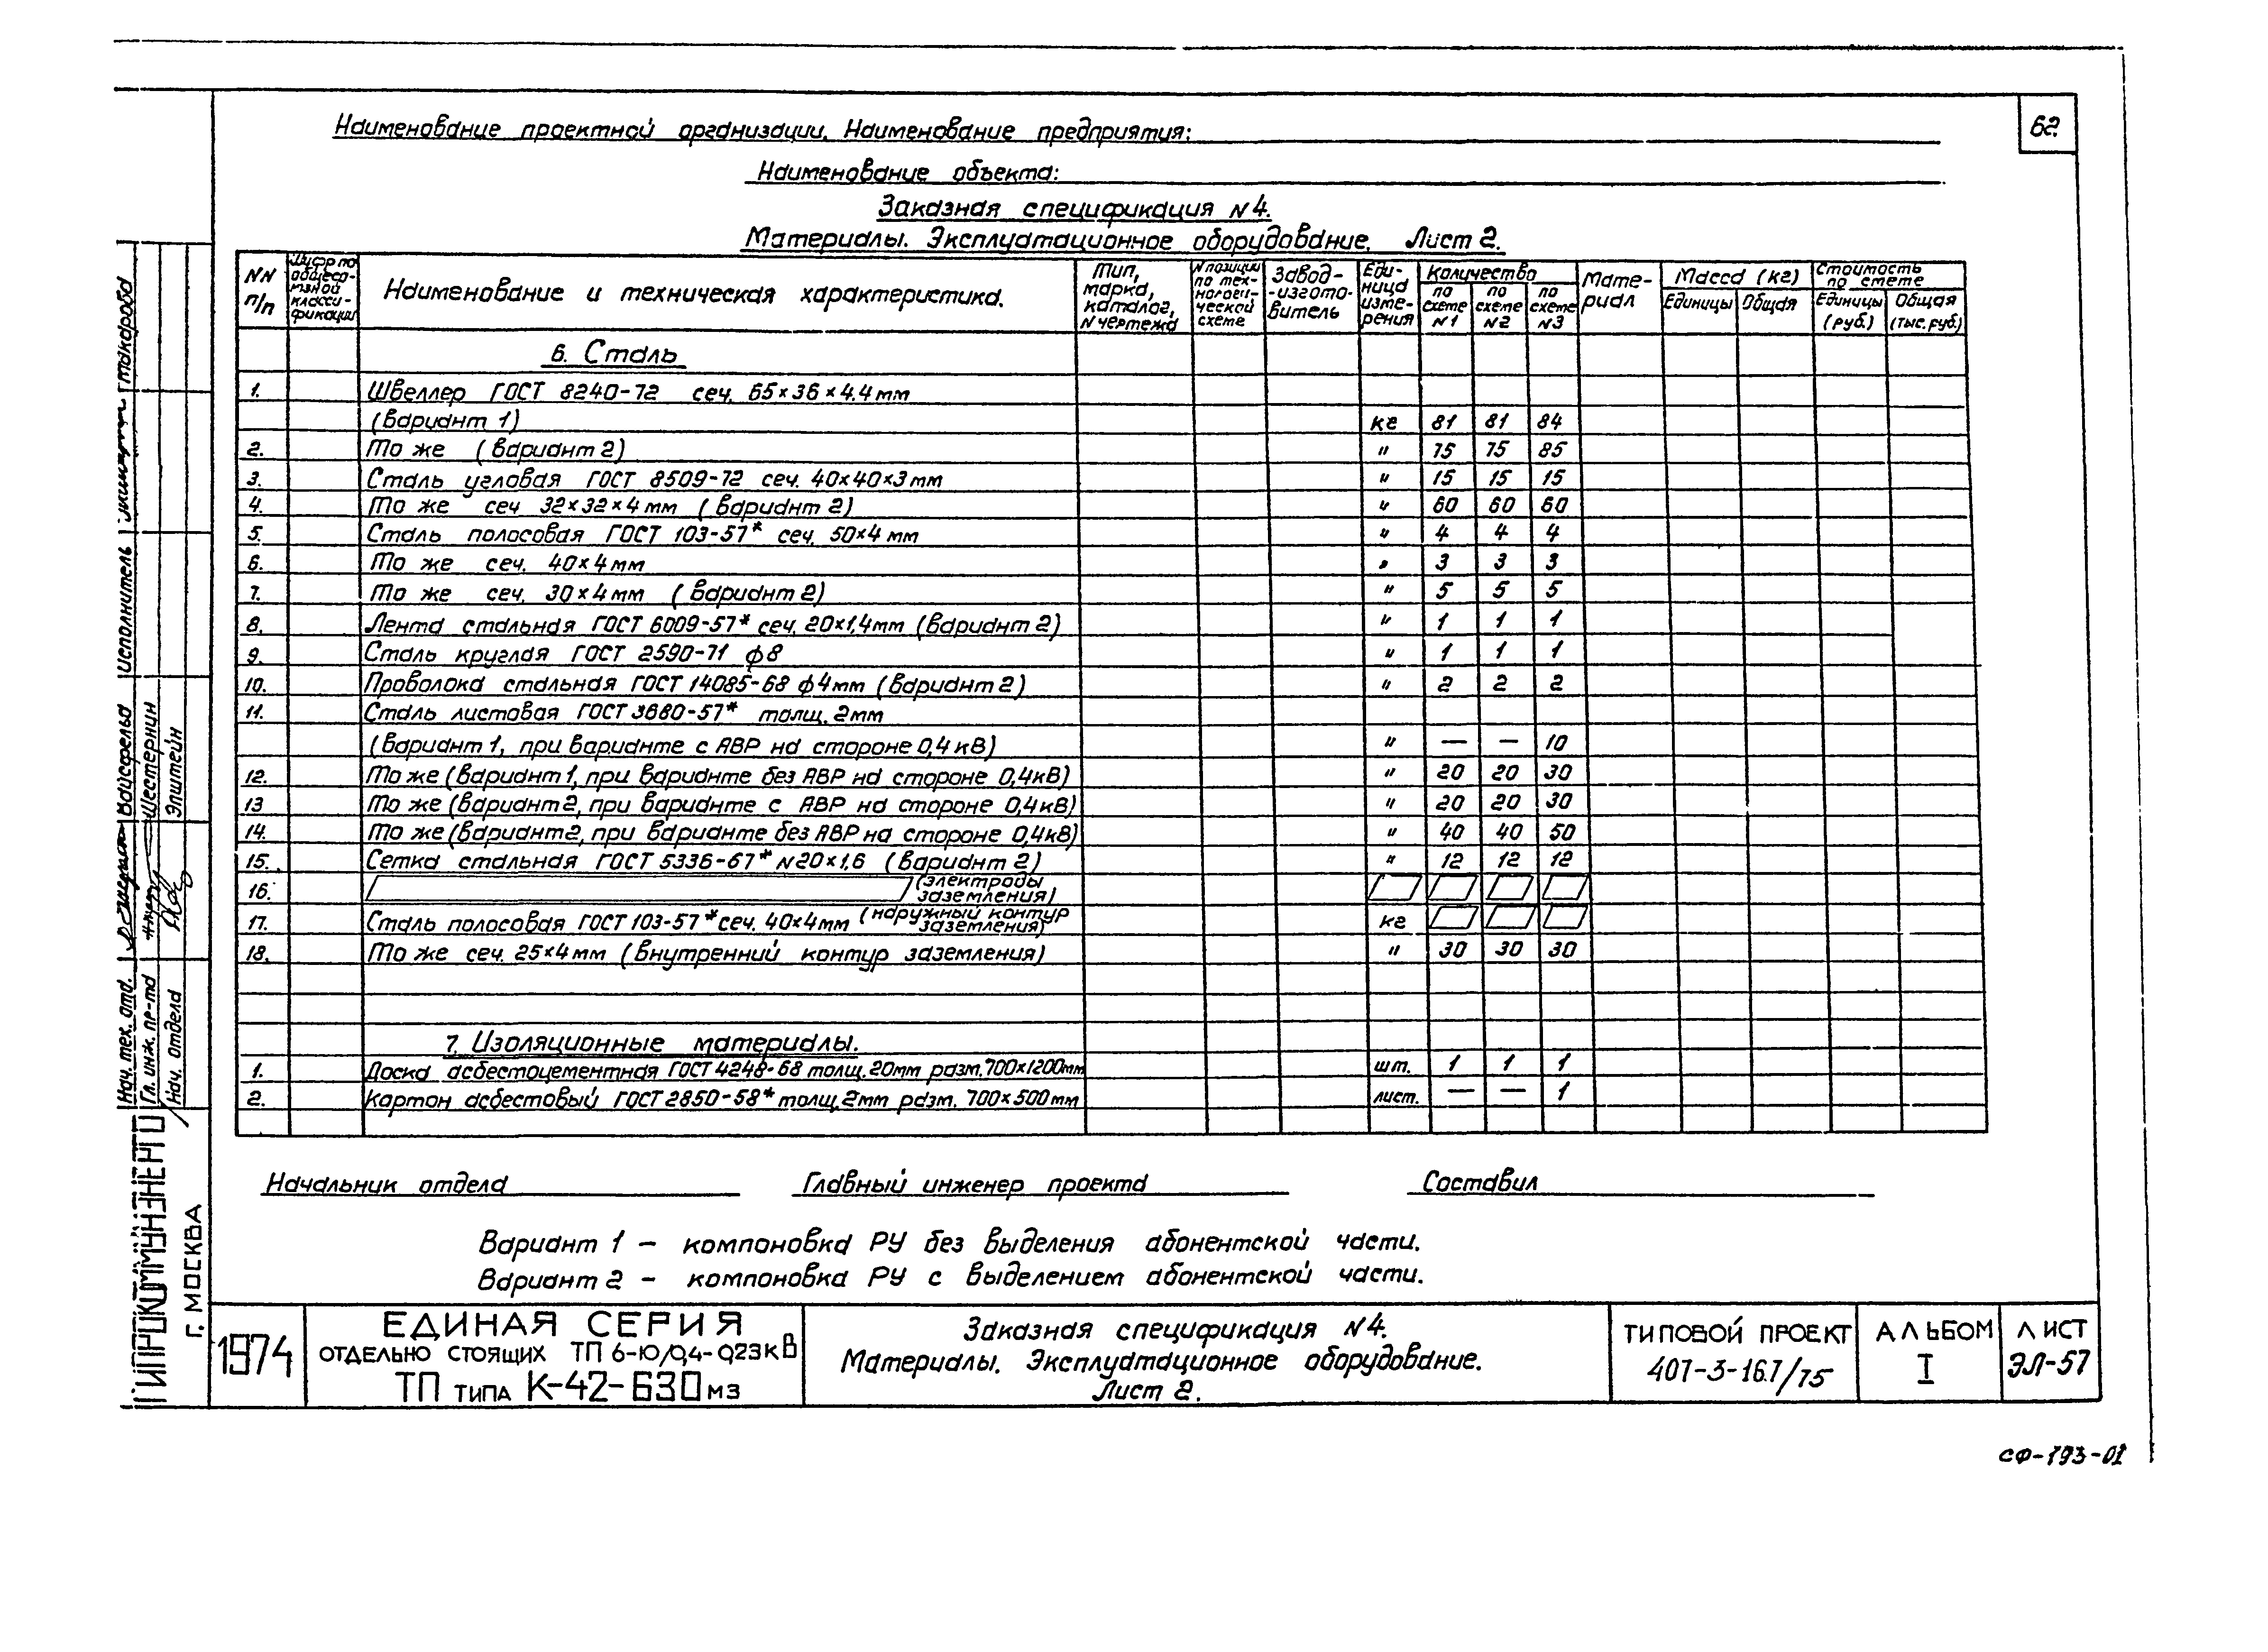 62.
Наименование проектной организации. Наименование предприятия:
Наименование объекта:
Заказная спецификация N4.
Материалы. Эксплуатационное оборудование. Лист 2.
NN п/п
Шифр по общесоюзной классификации
Наименование и техническая характеристика.
Тип, марка, каталог, N чертежа
N позиции по технологической схеме
Завод-изготовитель
Единица измерения
Количество
по схеме N1
по схеме N2
по схеме N3
Материал
Масса (кг)
Единицы
Общая
Стоимость по смете
Единицы (руб.)
Общая (тыс. руб.)
6. Сталь
1. Швеллер ГОСТ 8240-72 сеч. 65×36×4,4мм
(Вариант 1) кг 81 81 84
2. То же (вариант 2) " 75 75 85
3. Сталь угловая ГОСТ 8509-72 сеч. 40×40×3мм " 15 15 15
4. То же сеч 32×32×4мм (вариант 2) " 60 60 60
5. Сталь полосовая ГОСТ 103-57* сеч. 50×4мм " 4 4 4
6. То же сеч. 40×4мм " 3 3 3
7. То же сеч. 30×4мм (вариант 2) " 5 5 5
8. Лента стальная ГОСТ 6009-57* сеч. 20×1,4мм (вариант 2) " 1 1 1
9. Сталь круглая ГОСТ 2590-71 ф8 " 1 1 1
10. Проволока стальная ГОСТ 14085-68 ф4мм (вариант 2) " 2 2 2
11. Сталь листовая ГОСТ 3680-57* толщ. 2мм
(Вариант 1, при варианте с АВР на стороне 0,4кВ) " — — 10
12. То же (вариант 1, при варианте без АВР на стороне 0,4кВ) " 20 20 30
13 То же (вариант 2, при варианте с АВР на стороне 0,4кВ) " 20 20 30
14. То же (вариант 2, при варианте без АВР на стороне 0,4кВ) " 40 40 50
15. Сетка стальная ГОСТ 5336-67* N20×1,6 (вариант 2) " 12 12 12
16. (электроды заземления)
17. Сталь полосовая ГОСТ 103-57* сеч. 40×4мм (наружный контур заземления) кг
18. То же сеч. 25×4мм (внутренний контур заземления) " 30 30 30
7. Изоляционные материалы.
1. Доска асбестоцементная ГОСТ 4248-68 толщ. 20мм разм. 700×1200мм шт. 1 1 1
2. Картон асбестовый ГОСТ 2850-58* толщ. 2мм разм. 700×500мм лист. — — 1
Начальник отдела Главный инженер проекта Составил
Вариант 1 – компоновка РУ без выделения абонентской части.
Вариант 2 – компоновка РУ с выделением абонентской части.
1974
ЕДИНАЯ СЕРИЯ
ОТДЕЛЬНО СТОЯЩИХ ТП 6-10/0,4-0,23кВ
ТП ТИПА К-42-630 М3
Заказная спецификация N4.
Материалы. Эксплуатационное оборудование.
Лист 2.
ТИПОВОЙ ПРОЕКТ
407-3-167/75
АЛЬБОМ
I
ЛИСТ
ЭЛ-57
СФ-193-01
ГИПРОКОММУНЭНЕРГО
Г. МОСКВА
Нач. тех. отд. Вайсфельд Исполнитель Макарова
Гл. инж. пр-та Шестернин
Нач. отдела Эпштейн